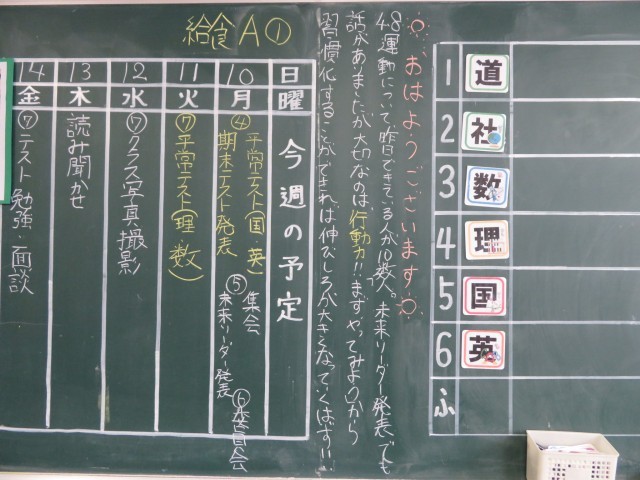 給食A①
おはようございます
48運動について、昨日できている人が10数人。未来リーダー発表でも
話がありましたが大切なのは、行動力!!まずやってみよう!から
習慣化することができれば伸びしろが大きくなっていくはず!!
1 道
2 社
3 数
4 理
5 国
6 英
ふ
今週の予定
日 曜
10 月 ④平常テスト(国 英) 期末テスト発表 ⑤集会 未来リーダー発表 ⑥委員会
11 火 ⑦平常テスト(理 数)
12 水 ⑦クラス写真撮影
13 木 読み聞かせ
14 金 ⑦テスト勉強・面談